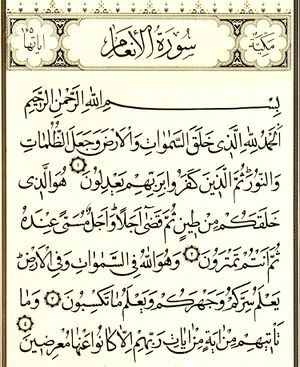 مكية سورة الأنعام آياتها ١٦٥
بِسْمِ اللّٰهِ الرَّحْمٰنِ الرَّحِيمِ
اَلْحَمْدُ لِلّٰهِ الَّذِى خَلَقَ السَّمٰوَاتِ وَالْاَرْضَ وَجَعَلَ الظُّلُمَاتِ
وَالنُّورَ ثُمَّ الَّذِينَ كَفَرُوا بِرَبِّهِمْ يَعْدِلُونَ ١ هُوَ الَّذِى
خَلَقَكُمْ مِنْ طِينٍ ثُمَّ قَضٰٓى اَجَلًا وَاَجَلٌ مُسَمًّى عِنْدَهُ
ثُمَّ اَنْتُمْ تَمْتَرُونَ ٢ وَهُوَ اللّٰهُ فِى السَّمٰوَاتِ وَفِى الْاَرْضِ
يَعْلَمُ سِرَّكُمْ وَجَهْرَكُمْ وَيَعْلَمُ مَا تَكْسِبُونَ ٣ وَمَا
تَأْتِيهِمْ مِنْ اٰيَةٍ مِنْ اٰيَاتِ رَبِّهِمْ اِلَّا كَانُوا عَنْهَا مُعْرِضِينَ ٤